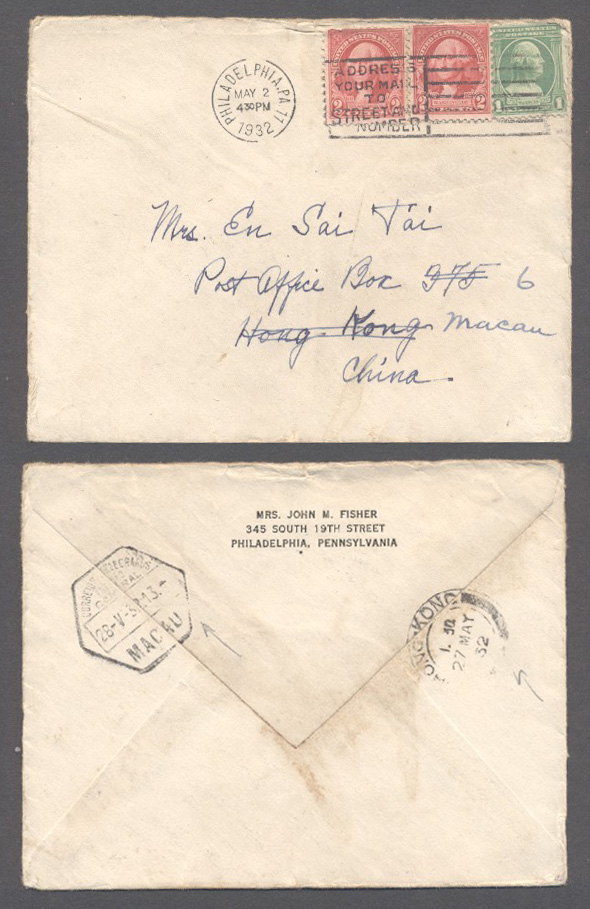 PHILADELPHIA, PA. 17
MAY 2
430PM
1932
UNITED STATES POSTAGE
2
UNITED STATES POSTAGE
2 2
1 1
ADDRESS
YOUR MAIL
TO
STREET AND
NUMBER
Mrs. En Sai Tai
Post Office Box 975 6
Hong Kong Macau
China.
MRS. JOHN M. FISHER
345 SOUTH 19TH STREET
PHILADELPHIA, PENNSYLVANIA
28-V-32 13.-
MACAU
HONG KONG
1. 30
27 MAY
32